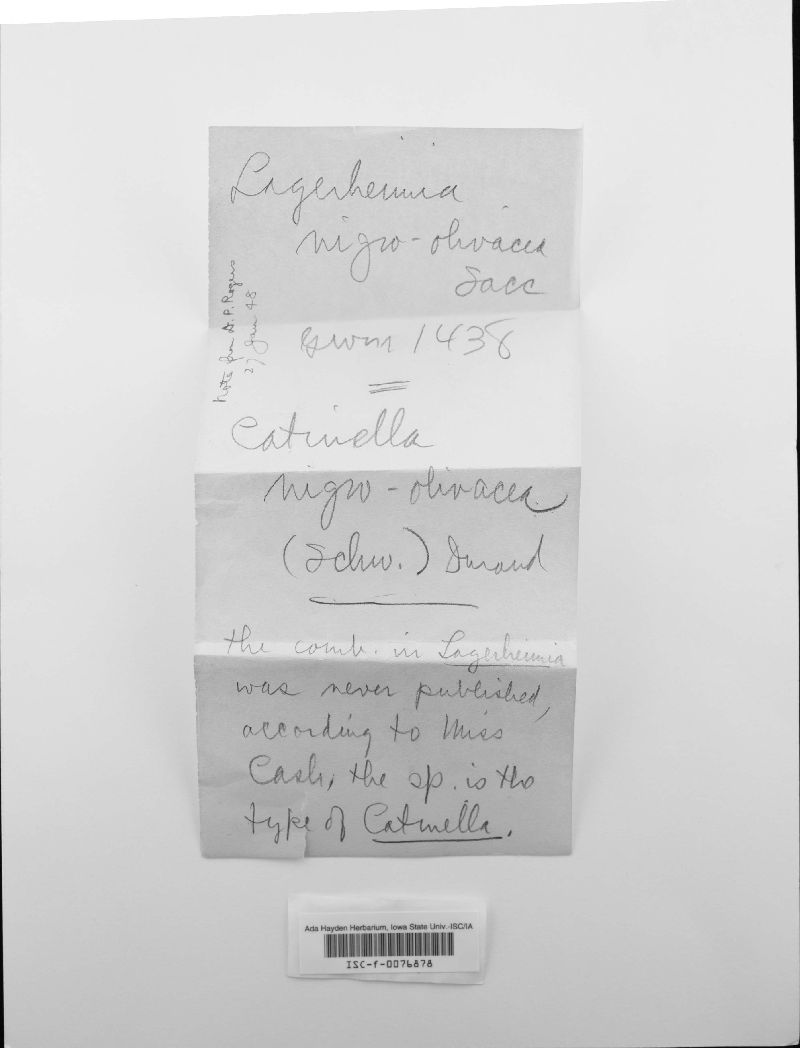 Lagerheimia
nigro-olivacea
Sacc
GWM 1438
=
Catinella
nigro-olivacea
(Schw.) Durand
the comb. in Lagerheimia
was never published,
according to Miss
Cash, the sp. is the
type of Catinella.
Note from D.P. Rogers
27 Jan 48
Ada Hayden Herbarium, Iowa State Univ.-ISC/IA
ISC-f-0076878